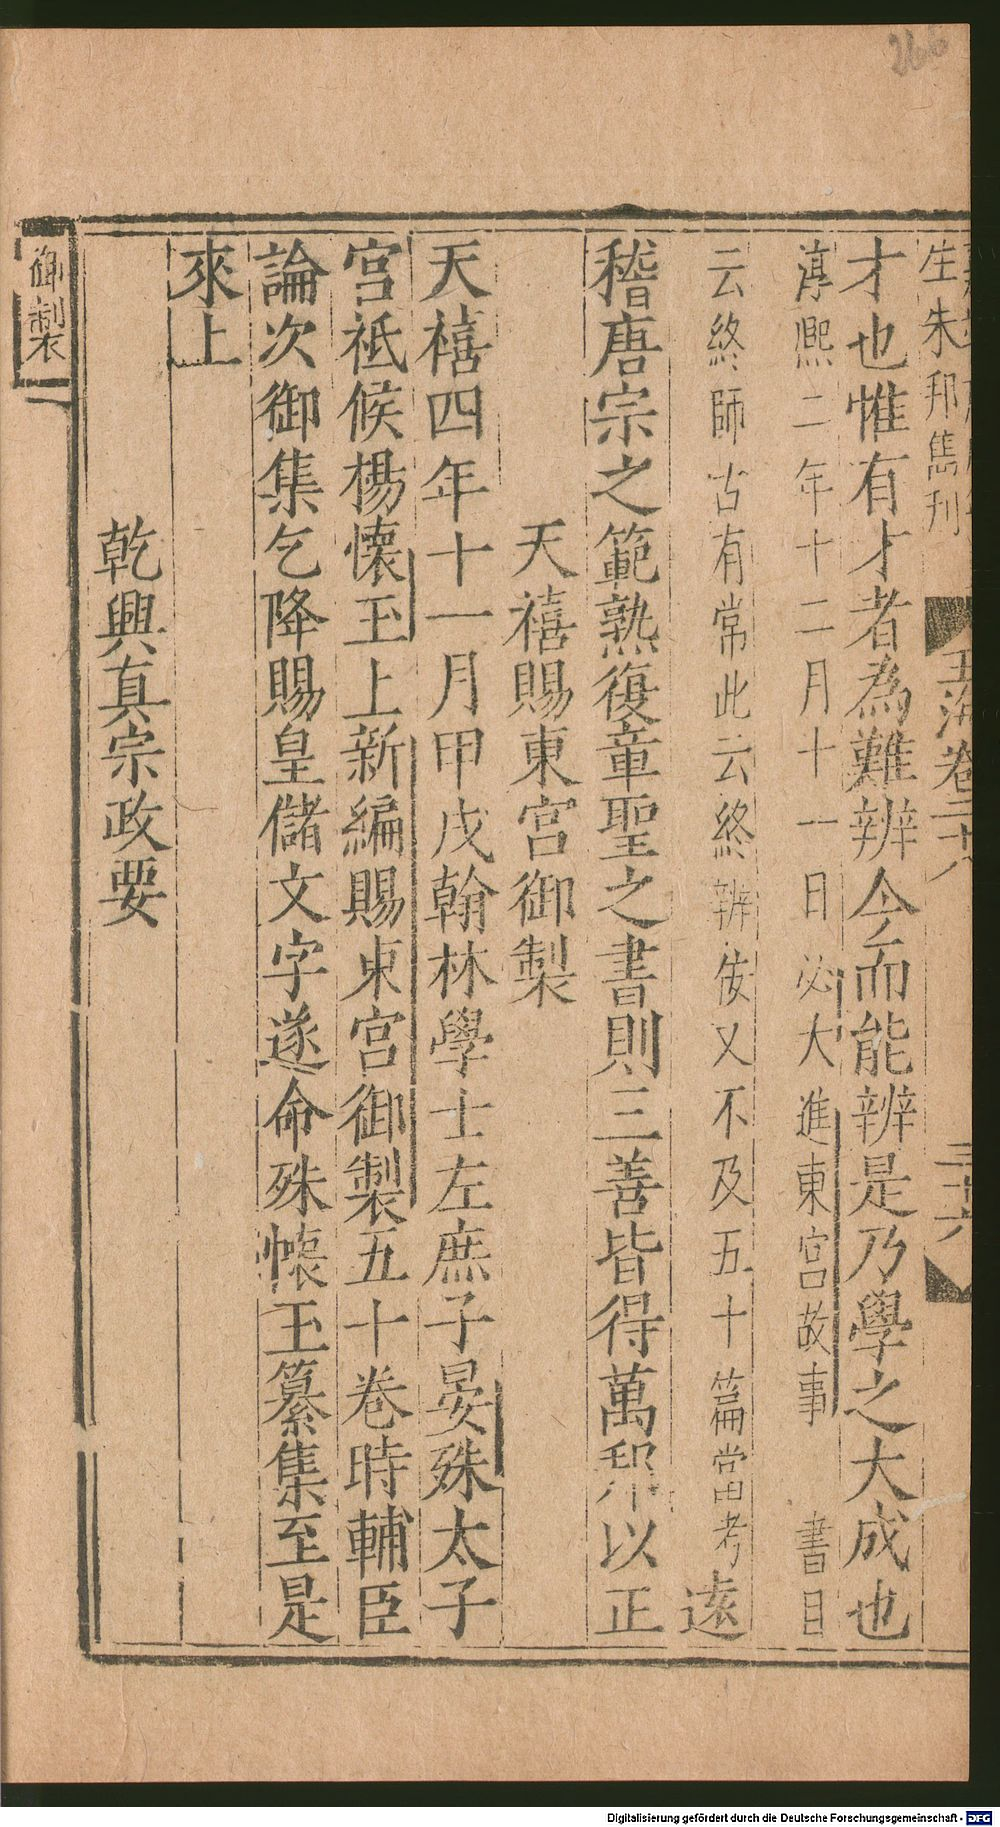 266
生朱邦雋刊
玉海卷二十八
三十六
才也惟有才者為難辨今而能辨是乃學之大成也
淳熙二年十二月十一日必大進東宮故事 書目
云終師古有常此云終辨佞又不及五十篇當考 遠
稽唐宗之範熟復章聖之書則三善皆得萬邦以正
天禧賜東宮御製
天禧四年十一月甲戌翰林學士左庶子晏殊太子
宮祗候楊懷玉上新編賜東宮御製五十卷時輔臣
論次御集乞降賜皇儲文字遂命殊懷玉纂集至是
來上
乾興真宗政要
御製
Digitalisierung gefördert durch die Deutsche Forschungsgemeinschaft - DFG